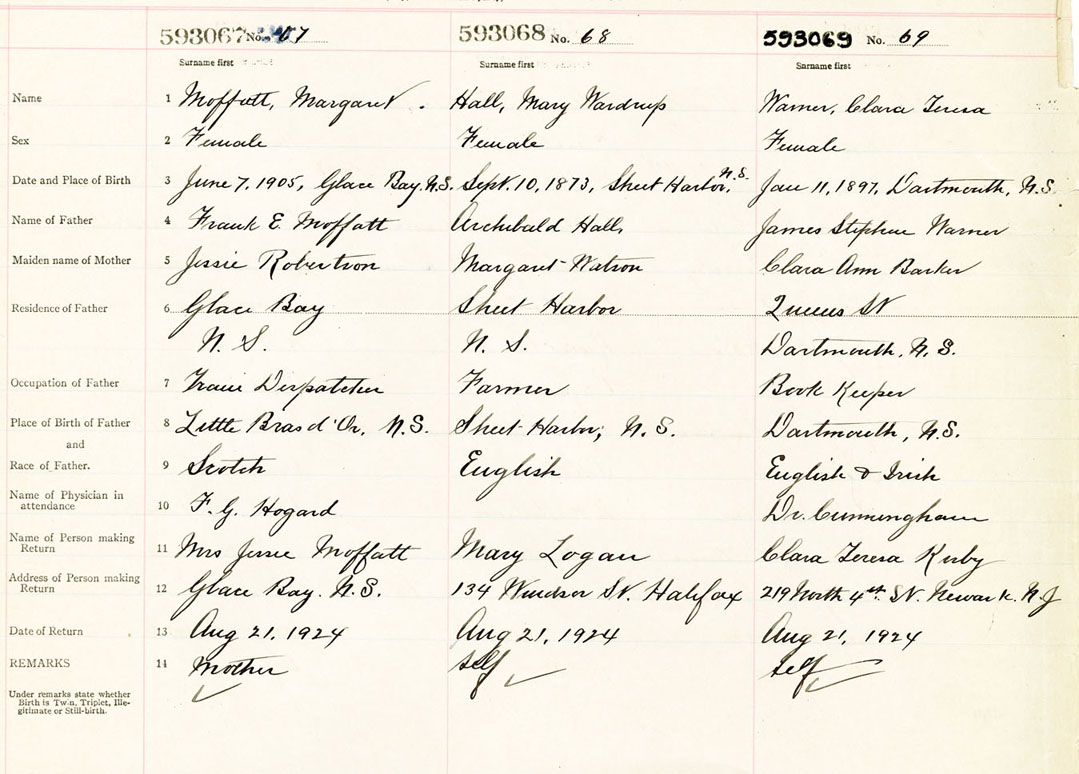 593067 No. 67 593068 No. 68 593069 No. 69
Surname first Surname first Surname first
Name 1 Moffatt, Margaret. Hall, Mary Wardrup Warner, Clara Teresa
Sex 2 Female Female Female
Date and Place of Birth 3 June 7, 1905, Glace Bay. N.S. Sept. 10, 1873, Sheet Harbor, N.S. Jan 11, 1897, Dartmouth, N.S.
Name of Father 4 Frank E. Moffatt Archibald Hall, James Stephen Warner
Maiden name of Mother 5 Jessie Robertson Margaret Watson Clara Ann Barker
Residence of Father 6 Glace Bay Sheet Harbor Queens St
N. S. N. S. Dartmouth, N. S.
Occupation of Father 7 Train Despatcher Farmer Book Keeper
Place of Birth of Father 8 Little Bras d'Or, N.S. Sheet Harbor, N.S. Dartmouth, N.S.
and
Race of Father. 9 Scotch English English & Irish
Name of Physician in
attendance 10 F. G. Hogard Dr. Cunningham
Name of Person making
Return 11 Mrs Jessie Moffatt Mary Logan Clara Teresa Kirby
Address of Person making
Return 12 Glace Bay. N.S. 134 Windsor St. Halifax 219 North 4th St. Newark. N.J
Date of Return 13 Aug 21, 1924 Aug 21, 1924 Aug 21, 1924
REMARKS 14 Mother self self
Under remarks state whether
Birth is Twin, Triplet, Ille-
gitimate or Still-birth.